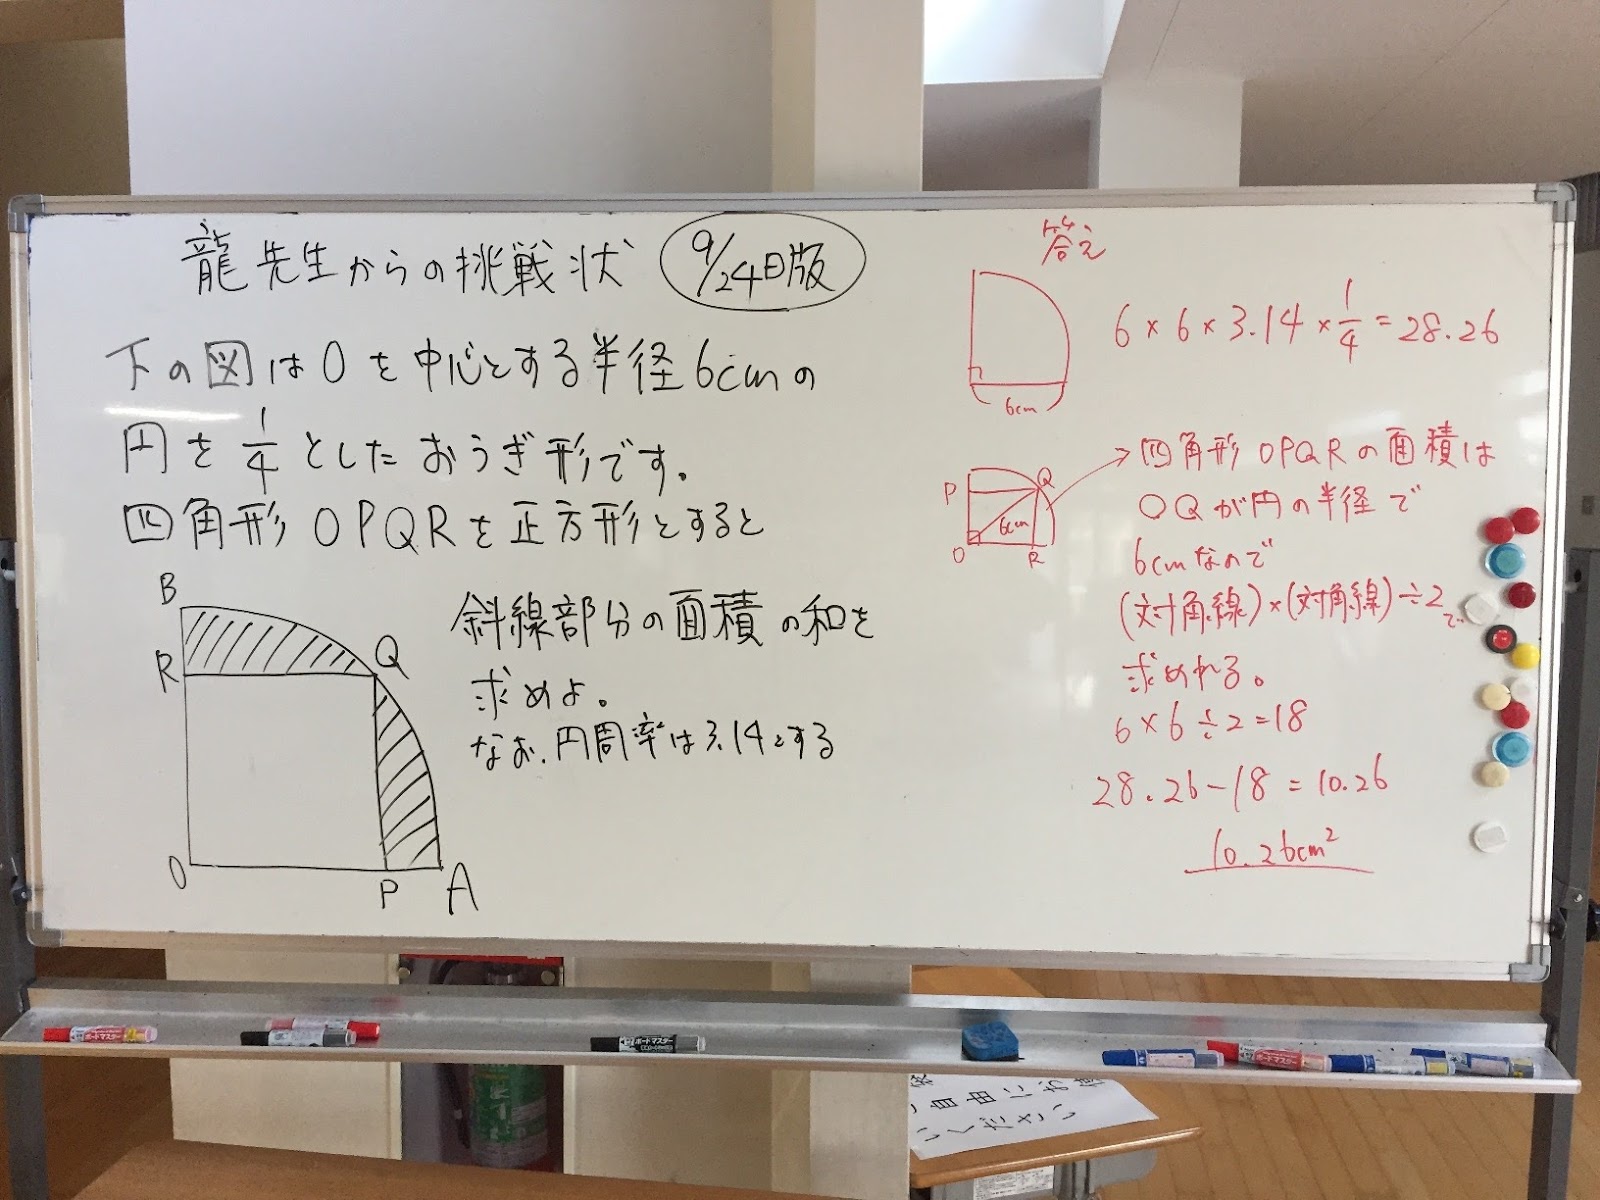 龍先生からの挑戦状 9/24日版
下の図はOを中心とする半径6cmの
円を1/4としたおうぎ形です。
四角形OPQRを正方形とすると
斜線部分の面積の和を
求めよ。
なお、円周率は3.14とする
B
R
Q
O
P
A
答え
6×6×3.14×1/4=28.26
6cm
P
Q
6cm
O
R
四角形OPQRの面積は
OQが円の半径で
6cmなので
(対角線)×(対角線)÷2で
求めれる。
6×6÷2=18
28.26-18=10.26
10.26cm²
ボードマスター
ボードマスター
ボードマスター
自由にお
ください